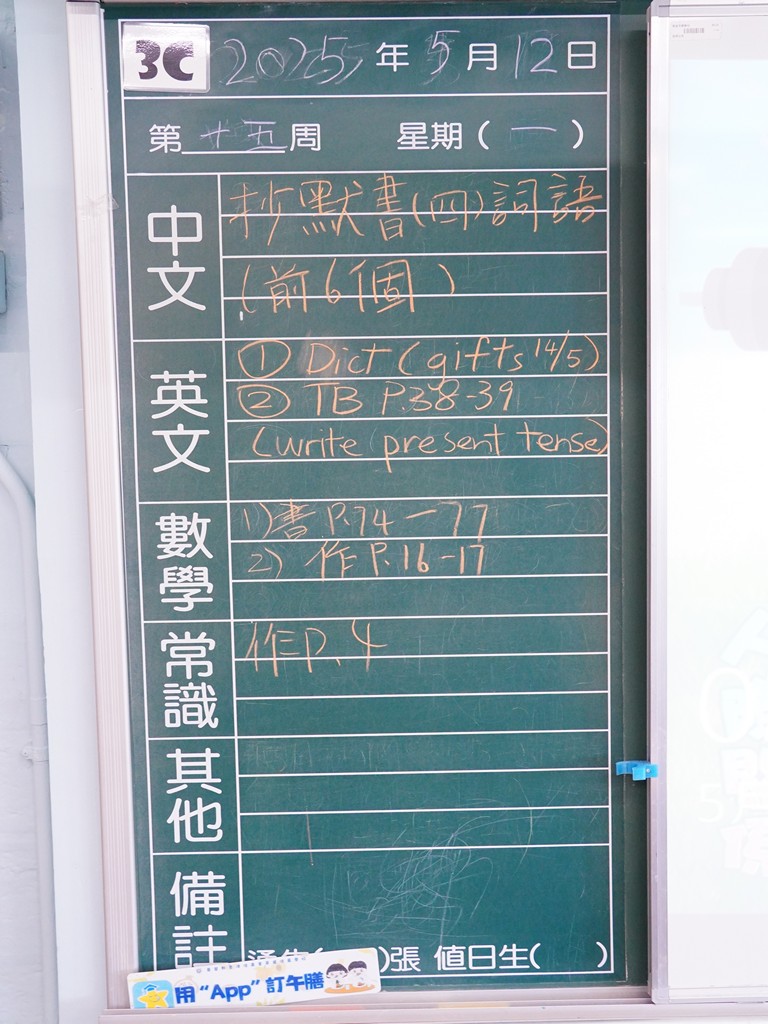 3C 2025年5月12日
第十五周 星期(一)
中文
抄默書(四)詞語
(前6個)
英文
① Dict (gifts 14/5)
② TB P.38-39
(write present tense)
數學
1)書 P.74-77
2) 作 P.16-17
常識
作P.4
其他
備註
張 值日生( )
用“App”訂午膳